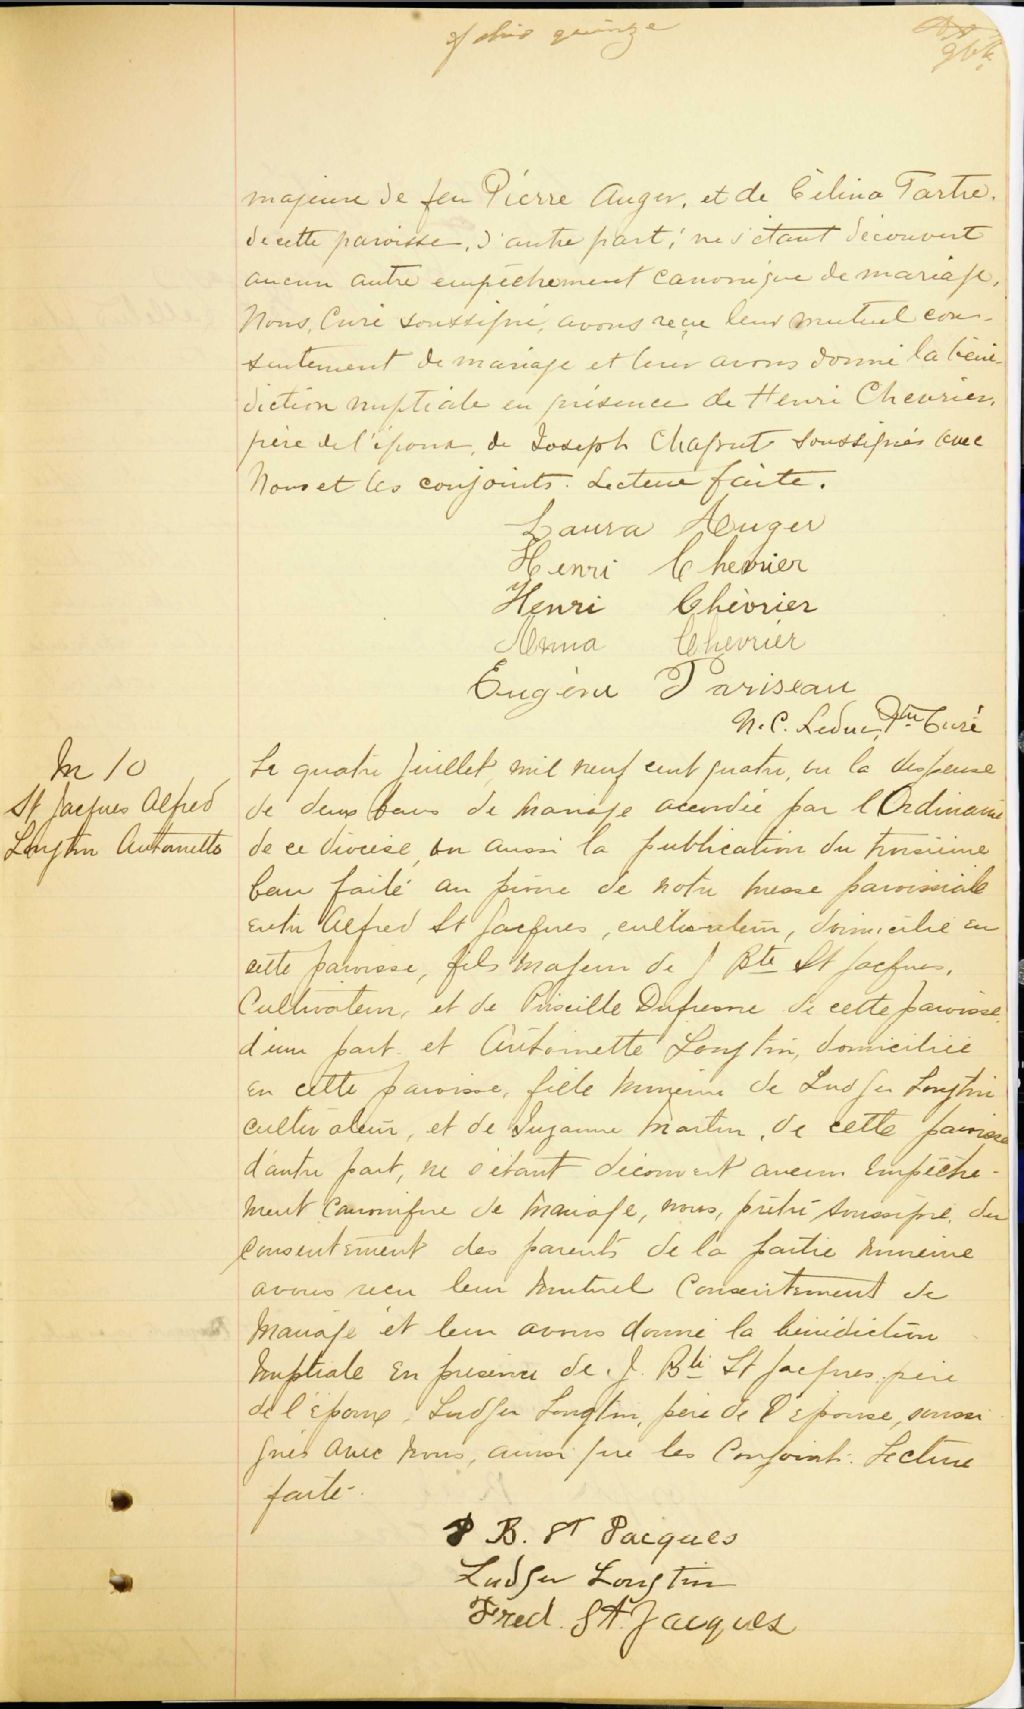 folio quinze
majeure de feu Pierre Auger, et de Célina Tartre,
de cette paroisse, d'autre part; ne s'étant découvert
aucun autre empêchement canonique de mariage,
Nous, Curé soussigné, avons reçu leur mutuel con-
sentement de mariage et leur avons donné la béné-
diction nuptiale en présence de Henri Chevrier,
père de l'époux, de Joseph Chaput soussignés avec
Nous et les conjoints. Lecture faite.
Laura Auger
Henri Chevrier
Henri Chèvrier
Anna Chevrier
Eugène Pariseau
N. C. Leduc, Ptre Curé
M 10
St Jacques Alfred
Longtin Antoinette
Le quatre Juillet, mil neuf cent quatre, vu la dispense
de deux bans de mariage accordée par l'Ordinaire
de ce diocèse, vu aussi la publication du troisième
ban faite au prône de notre messe paroissiale
entre Alfred St Jacques, cultivateur, domicilié en
cette paroisse, fils majeur de J Bte St Jacques,
Cultivateur, et de Priscille Dufresne de cette paroisse
d'une part et Antoinette Longtin, domiciliée
en cette paroisse, fille mineure de Ludger Longtin
cultivateur, et de Suzanne Martin, de cette paroisse
d'autre part, ne s'étant découvert aucun Empêche-
ment Canonique de Mariage, nous, prêtre soussigné, du
consentement des parents de la partie mineure
avons reçu leur mutuel Consentement de
Mariage et leur avons donné la bénédiction
Nuptiale en présence de J. Bte St Jacques, père
de l'Époux, Ludger Longtin, père de l'Épouse, soussi
gnés avec nous, ainsi que les Conjoints. Lecture
faite.
J B. St Jacques
Ludger Longtin
Fred. St. Jacques